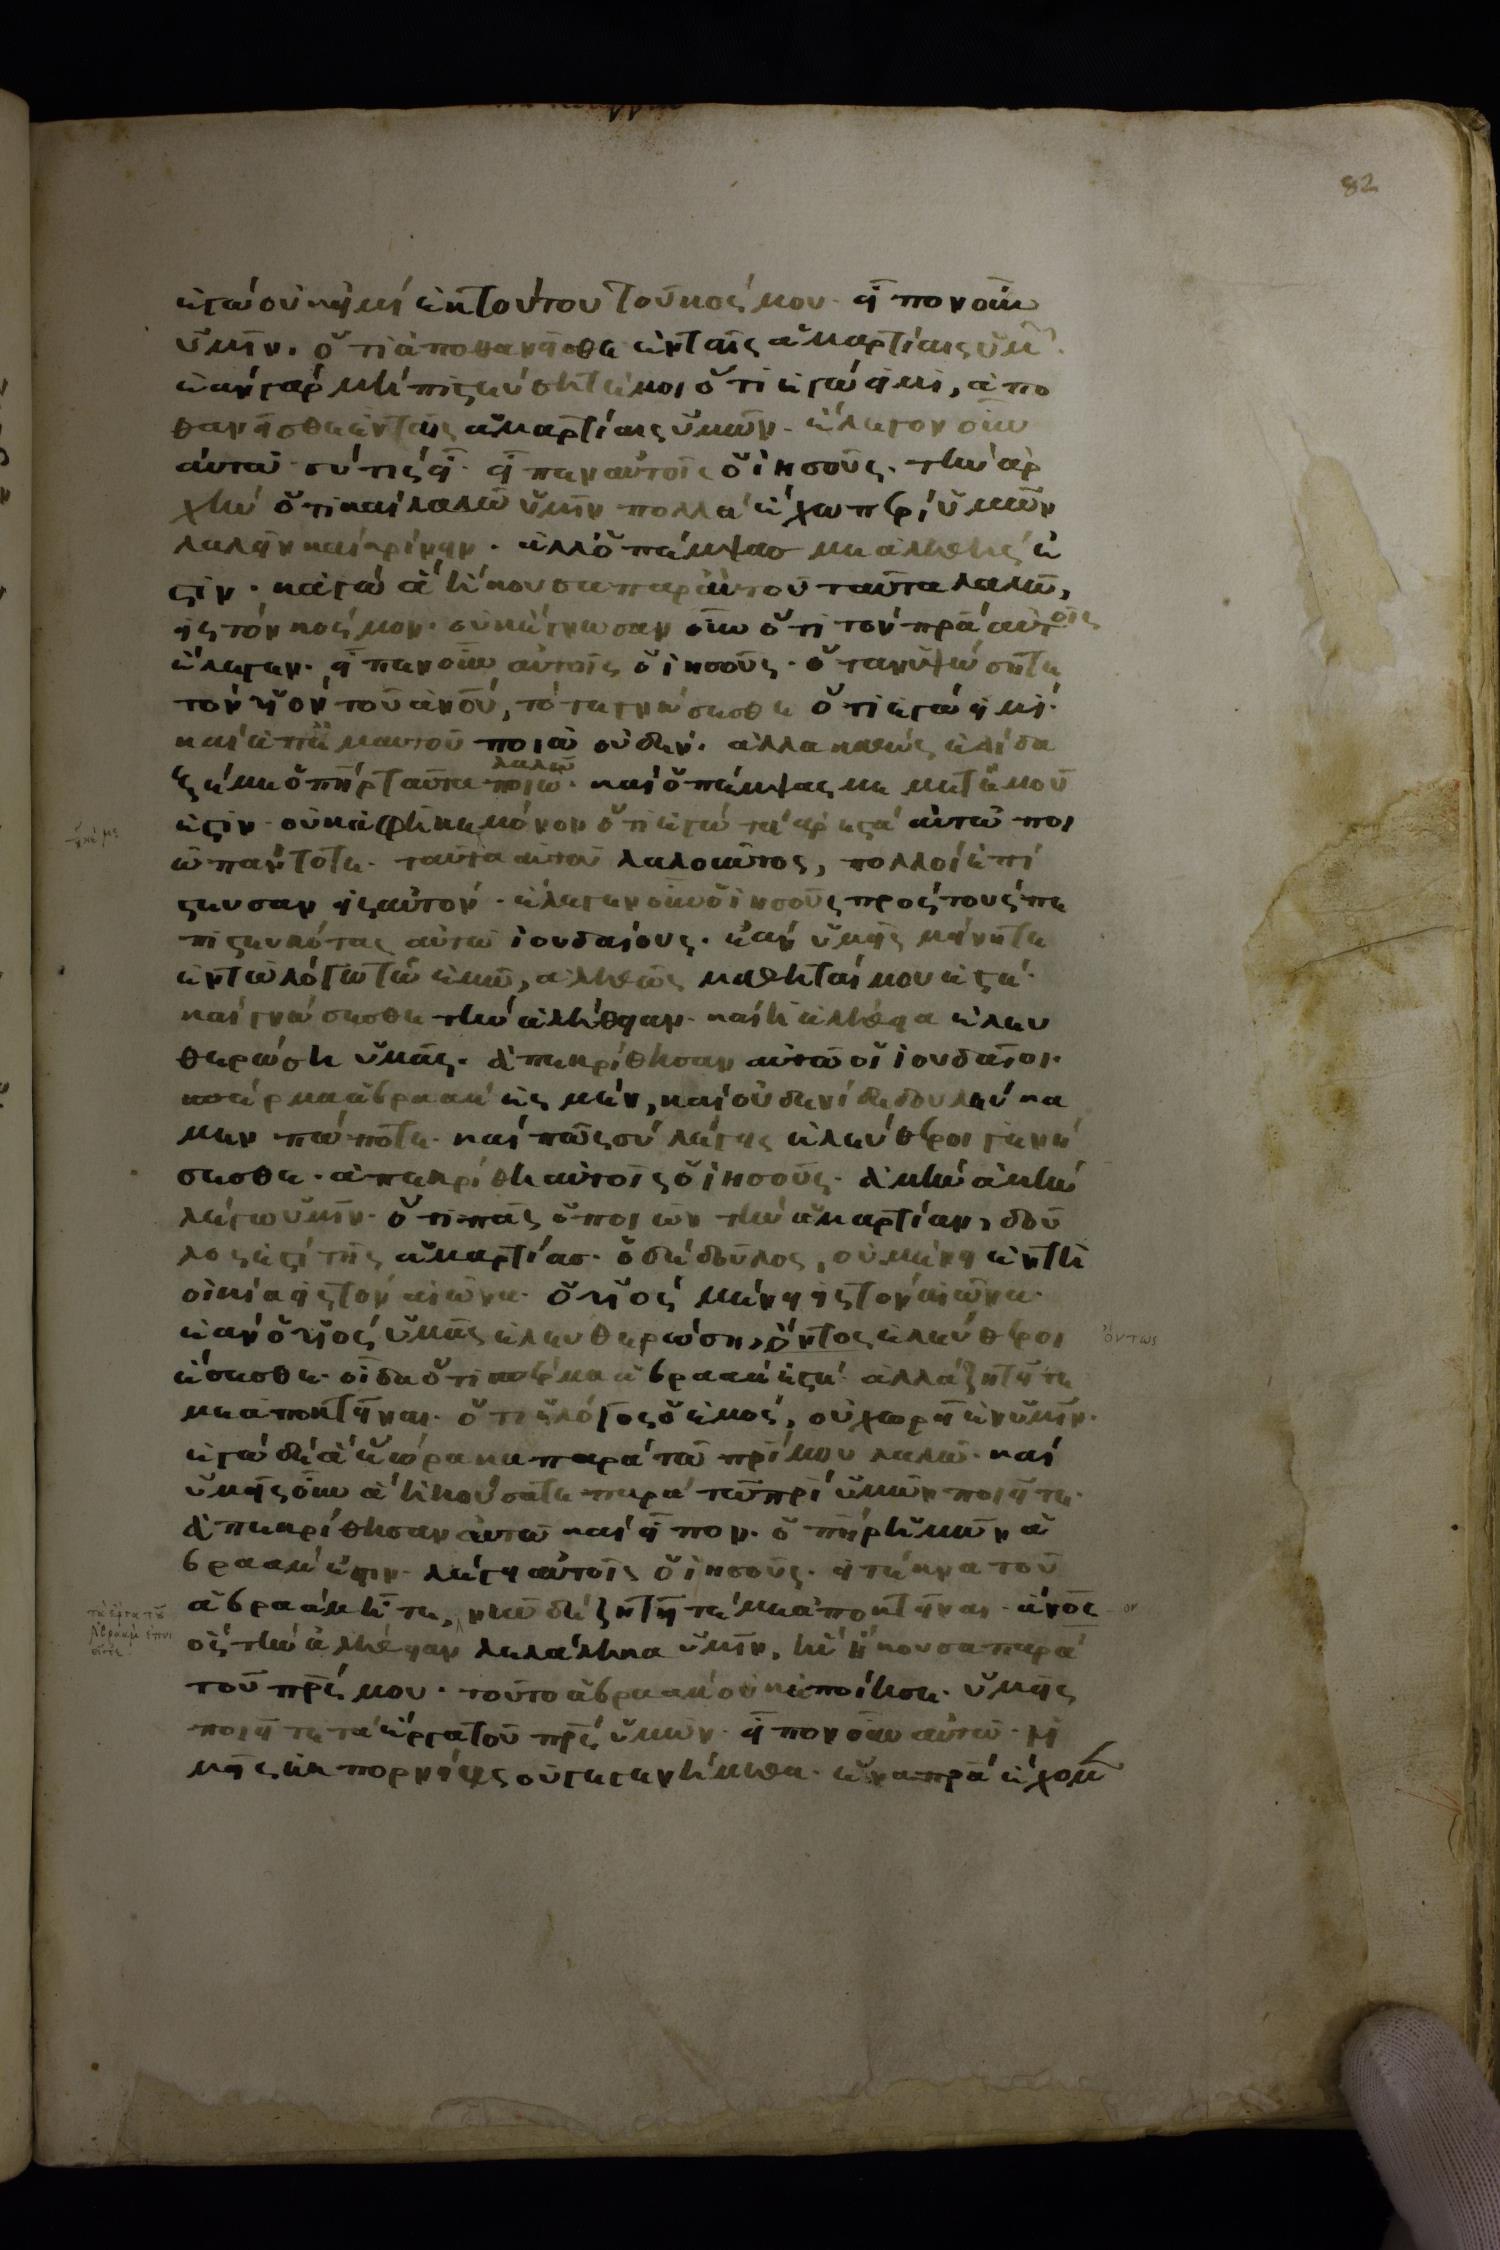 82
ἐγὼ οὐκ εἰμί ἐκ τούτου τοῦ κόσμου. εἶπον οὖν
ὑμῖν. ὅτι ἀποθανεῖσθε ἐν ταῖς ἁμαρτίαις ὑμ̑
ἐὰν γὰρ μὴ πιστεύσητέ μοι ὅτι ἐγώ εἰμι, ἀπο
θανεῖσθε ἐν ταῖς ἁμαρτίαις ὑμῶν. ἔλεγον οὖν
αὐτῶ σύ τίς εἶ. εἶπεν αὐτοῖς ὁ ἰησοῦς. τὴν ἀρ
χὴν ὅτι καὶ λαλῶ ὑμῖν πολλὰ ἔχω περὶ ὑμῶν
λαλεῖν καὶ κρίνειν. ἀλλ' ὁ πέμψας με ἀληθής ἐ
στιν. κἀγὼ ἃ ἤκουσα παρ' αὐτοῦ ταῦτα λαλῶ,
εἰς τὸν κόσμον. οὐκ ἔγνωσαν οὖν ὅτι τὸν πρᾱ αὐτοῖς
ἔλεγεν. εἶπεν οὖν αὐτοῖς ὁ ἰησοῦς. ὅταν ὑψώσητε
τὸν υἱὸν τοῦ ἀν̅ου, τότε γνώσεσθε ὅτι ἐγώ εἰμί.
καὶ ἀπ' ἐμαυτοῦ ποιῶ οὐδέν. ἀλλα καθὼς ἐδίδα
ξέ με ὁ πη̅ρ ταῦτα ποιῶ. λαλῶ καὶ ὁ πέμψας με μετ' ἐμοῦ
ἐστὶν. οὐκ ἀφῆκε μόνον ὅτι ἐγὼ τὰ ἀρεστὰ αὐτῶ ποι
ῶ πάντοτε. ταῦτα αὐτοῦ λαλοῦντος, πολλοὶ ἐπί
στευσαν εἰς αὐτόν. ἔλεγεν οὖν ὁ ἰησοῦς πρὸς τοὺς πε
πιστευκότας αὐτῶ ἰουδαίους. ἐὰν ὑμεῖς μένητε
ἐν τῶ λόγω τῶ ἐμῶ, ἀληθῶς μαθηταί μου ἐστέ.
καὶ γνώσεσθε τὴν ἀλήθειαν. καὶ ἡ ἀλήθεια ἐλευ
θερώση ὑμᾶς. ἀπεκρίθησαν αὐτῶ οἱ ἰουδαῖοι.
σπέρμα ἀβραάμ ἐσμέν, καὶ οὐδενὶ δεδουλεύκα
μεν πώποτε. καὶ πῶς σύ λέγεις ἐλεύθεροι γενή
σεσθε. ἀπεκρίθη αὐτοῖς ὁ ἰησοῦς. ἀμὴν ἀμὴν
λέγω ὑμῖν. ὅτι πᾶς ὁ ποιῶν τὴν ἁμαρτίαν, δοῦ
λος ἐστὶ τῆς ἁμαρτίας. ὁ δὲ δοῦλος, οὐ μένει ἐν τῆ
οἰκία εἰς τὸν αἰῶνα. ὁ υἱὸς μένει εἰς τὸν αἰῶνα.
ἐὰν ὁ υἱὸς ὑμᾶς ἐλευθερώση, ὄντος ἐλεύθεροι
ὄντως
ἔσεσθε. οἶδα ὅτι σπέρμα ἀβραάμ ἐστέ. ἀλλὰ ζητεῖτέ
με ἀποκτεῖναι. ὅτι ὁ λόγος ὁ ἐμὸς, οὐ χωρεῖ ἐν ὑμῖν.
ἐγὼ δὲ ἃ ἑώρακα παρὰ τῶ πρι̅ μου λαλῶ. καὶ
ὑμεῖς οὖν ἃ ἠκούσατε παρὰ τῶ πρι̅ ὑμῶν ποιεῖτε.
ἀπεκρίθησαν αὐτῶ καὶ εἶπον. ὁ πη̅ρ ἡμῶν ἀ
βραάμ ἐστιν. λέγει αὐτοῖς ὁ ἰησοῦς. εἰ τέκνα τοῦ
ἀβραὰμ ἦτε, νῦν δὲ ζητεῖτέ με ἀποκτεῖναι. ἀν̅ος
ον
τὰ ἔργα τοῦ
Ἀβραὰμ ἐποι
εῖτε
ὃς τὴν ἀλήθειαν λελάληκα ὑμῖν, ἣν ἤκουσα παρὰ
τοῦ πρ̅ς μου. τοῦτο ἀβραάμ οὐκ ἐποίησε. ὑμεῖς
ποιεῖτε τὰ ἔργα τοῦ πρ̅ς ὑμῶν. εἶπον οὖν αὐτῶ. ἡ
μεῖς ἐκ πορνείας οὐ γεγενήμεθα. ἕνα πρ̅α ἔχομ̅